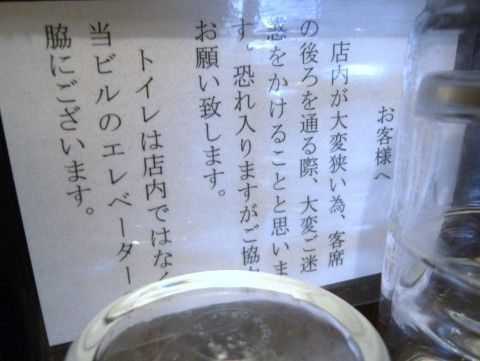 お客様へ
店内が大変狭い為、客席
の後ろを通る際、大変ご迷
惑をかけることと思いま
す。恐れ入りますがご協
お願い致します。
トイレは店内ではなく
当ビルのエレベーター
脇にございます。